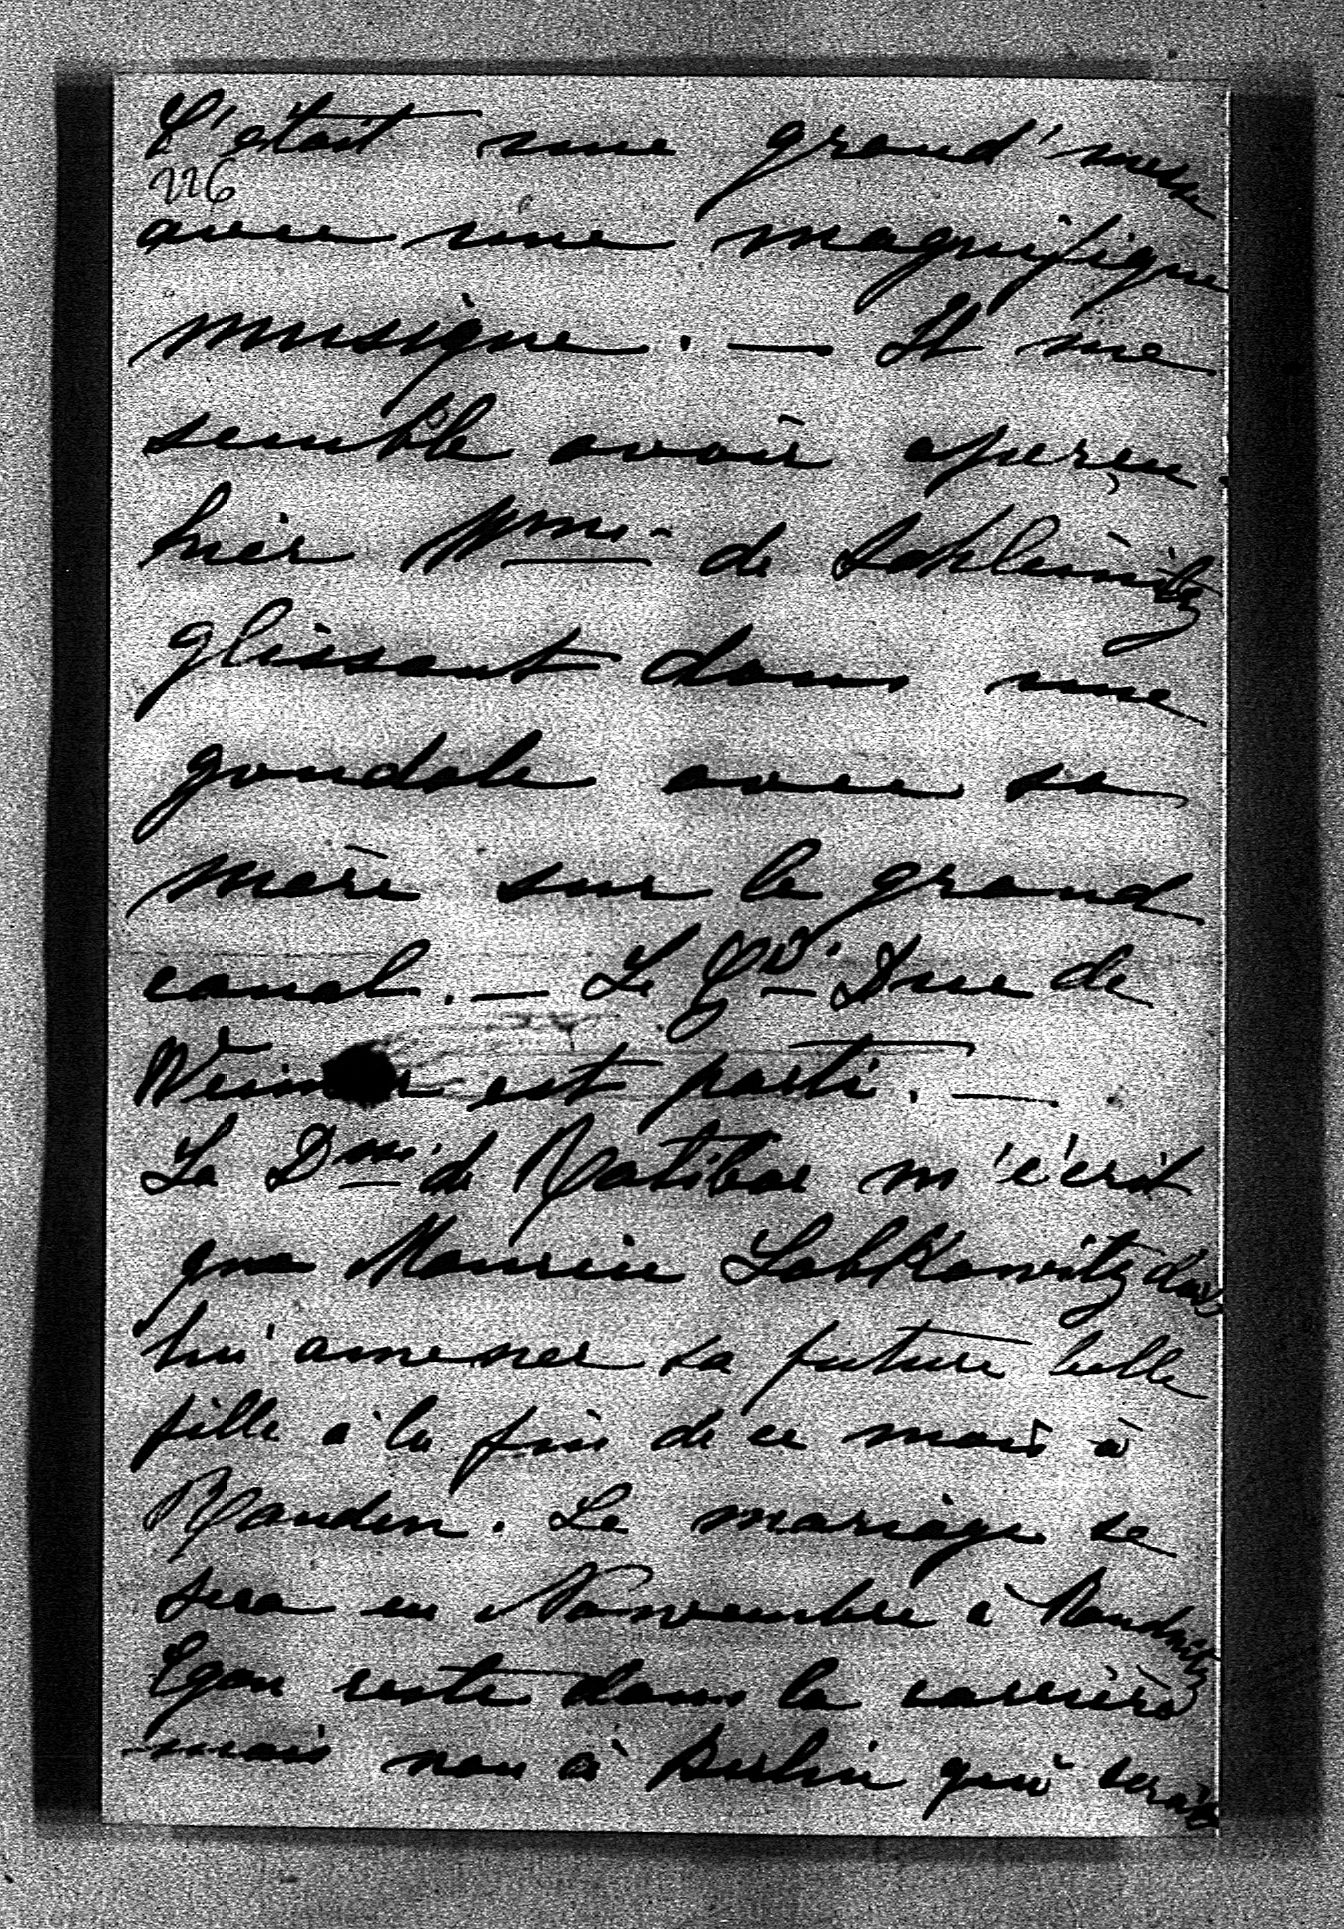 C'était une grand'messe
226
avec une magnifique
musique. — Il me
semble avoir aperçu
hier Mme. de Schleinitz
glissant dans une
gondole avec sa
mère sur le grand
canal. — Le Gd. Duc de
Weimar est parti. —
La Dsse. de Ratibor m'écrit
que Maurice Lobkowitz doit
lui amener sa future belle
fille à la fin de ce mois à
Rauden. Le mariage se
fera en Novembre à Raudnitz
Egon reste dans la carrière
mais non à Berlin qui serait